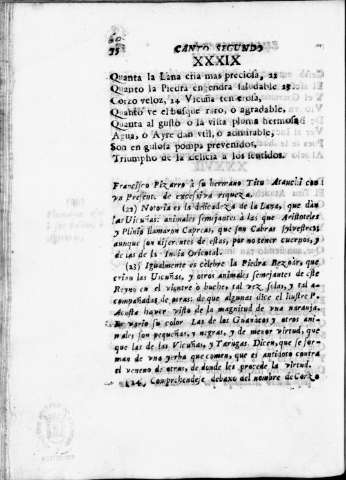 75
CANTO SEGUNDO
XXXIX
Quanta la Lana cria mas preciosa, 22
Quanto la Piedra engendra saludable 23
Corzo veloz, 24 Vicuña temerosa,
Quanto vè el bosque raro, o agradable,
Quanta al gusto ò la vista pluma hermosa
Agua, ò Ayre dan vtil, o admirable,
Son en gulosa pompa prevenidos,
Triumpho de la delicia à los sentidos.
Francisco Pizarro à su hermano Titu Atauchi con
va Present. de excessiva riqueza.
(22) Notoria es la delicadeza de la Lana, que dàn
las Vicuñas: animales semejantes à las que Aristoteles
y Plinio llamaron Capreas, que son Cabras sylvestres
aunque son diferentes de estas, por no tener cuernos, y
de las de la India Oriental.
(23) Igualmente es cèlebre la Piedra Bezoàr, que
crian las Vicuñas, y otros animales semejantes de este
Reyno en el vientre ò buche, tal vez solas, y tal a-
compañadas de otras: de que algunas dice el ilustre P.
Acosta haver visto de la magnitud de vna naranja.
Es vario su color. Las de los Guanacos y otros ani-
males son pequeñas, y negras, y de menor virtud, que
que las de las Vicuñas, y Tarugas. Dicen, que se for-
man de vna yerba que comen, que es antidoto contra
el veneno de otras, de donde les procede la virtud.
(24) Comprehendese debaxo del nombre de Corzo